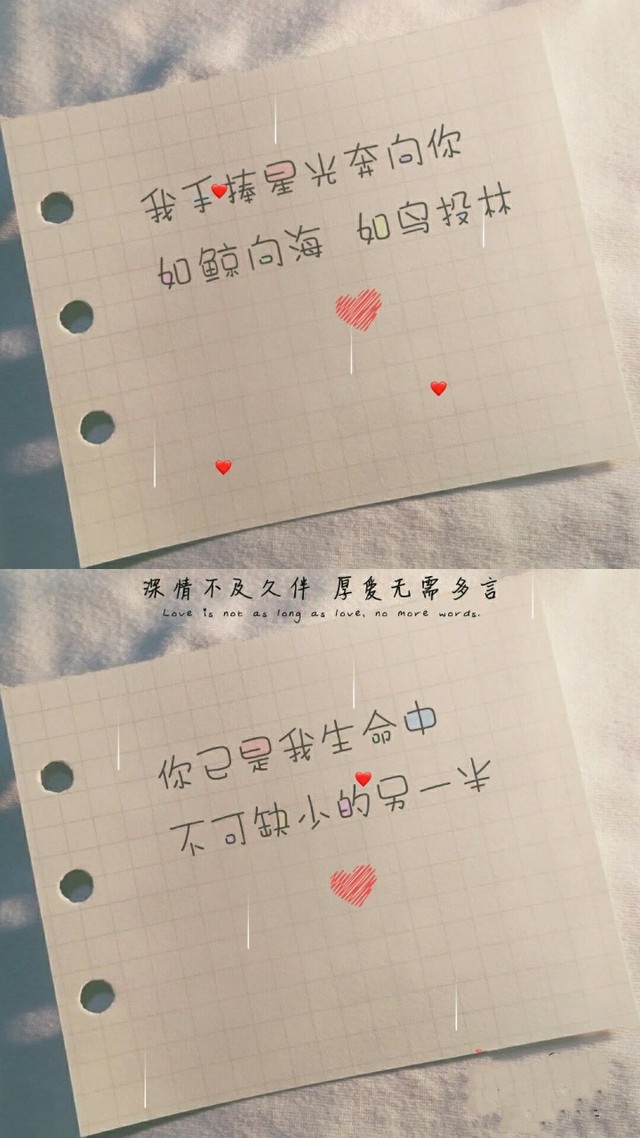 我手捧星光奔向你
如鲸向海 如鸟投林
深情不及久伴 厚爱无需多言
Love is not as long as love, no more words.
你已是我生命中
不可缺小的另一半